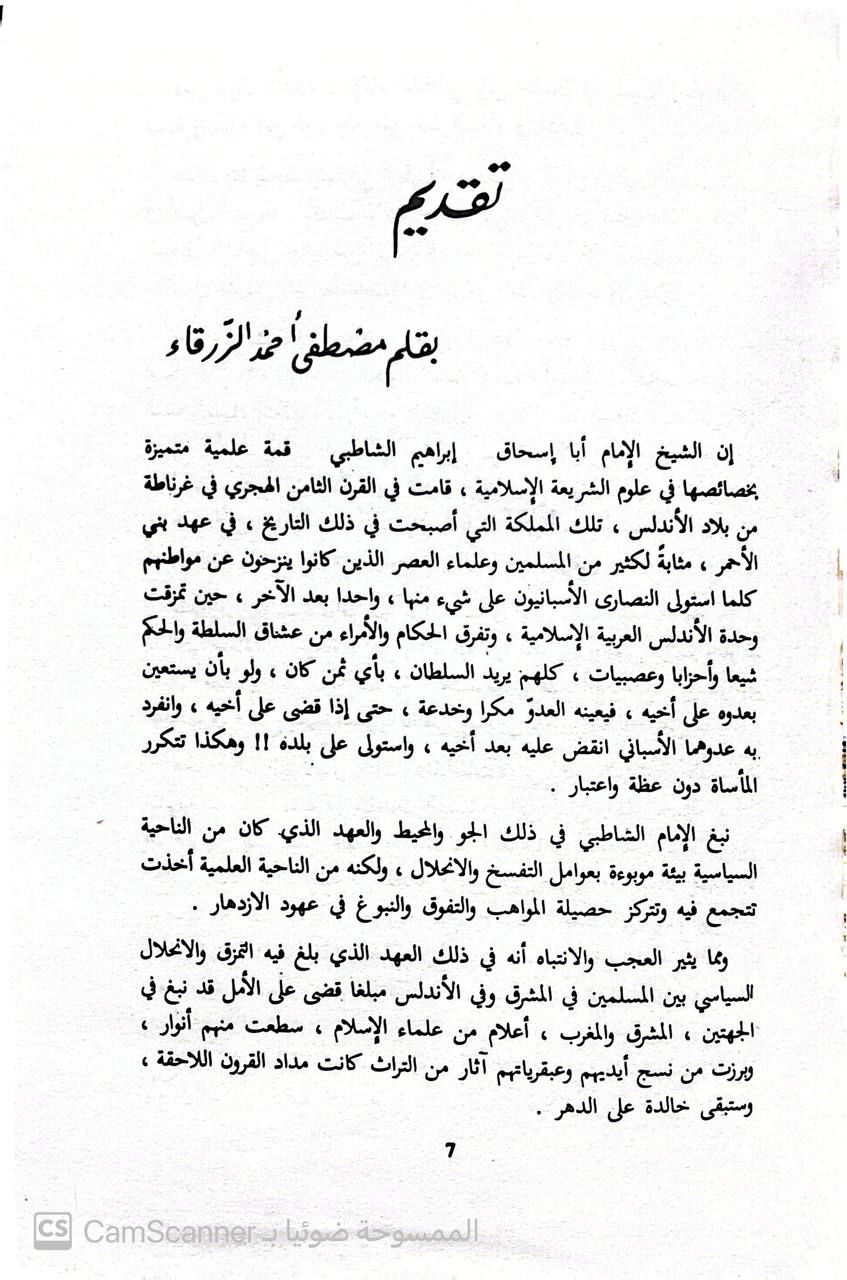 تقديم
بقلم مصطفى أحمد الزّرقاء
إن الشيخ الإمام أبا إسحاق إبراهيم الشاطبي قمة علمية متميزة
بخصائصها في علوم الشريعة الإسلامية ، قامت في القرن الثامن الهجري في غرناطة
من بلاد الأندلس ، تلك المملكة التي أصبحت في ذلك التاريخ ، في عهد بني
الأحمر ، مثابةً لكثير من المسلمين وعلماء العصر الذين كانوا ينزحون عن مواطنهم
كلما استولى النصارى الأسبانيون على شيء منها ، واحدا بعد الآخر ، حين تمزقت
وحدة الأندلس العربية الإسلامية ، وتفرق الحكام والأمراء من عشناق السلطة والحكم
شيعا وأحزابا وعصبيات ، كلهم يريد السلطان ، بأي ثمن كان ، ولو بأن يستعين
بعدوه على أخيه ، فيعينه العدوّ مكرا وخدعة ، حتى إذا قضى على أخيه ، وانفرد
به عدوهما الأسباني انقض عليه بعد أخيه ، واستولى على بلده !! وهكذا تتكرر
المأساة دون عظة واعتبار .
نبغ الإمام الشاطبي في ذلك الجو والمحيط والعهد الذي كان من الناحية
السياسية بيئة موبوءة بعوامل التفسخ والانحلال ، ولكنه من الناحية العلمية أخذت
تتجمع فيه وتتركز حصيلة المواهب والتفوق والنبوغ في عهود الازدهار .
ومما يثير العجب والانتباه أنه في ذلك العهد الذي بلغ فيه التمزق والانحلال
السياسي بين المسلمين في المشرق وفي الأندلس مبلغا قضى على الأمل قد نبغ في
الجهتين ، المشرق والمغرب ، أعلام من علماء الإسلام ، سطعت منهم أنوار ،
وبرزت من نسج أيديهم وعبقرياتهم آثار من التراث كانت مداد القرون اللاحقة ،
وستبقى خالدة على الدهر .
7
CS CamScanner الممسوحة ضوئيا بـ